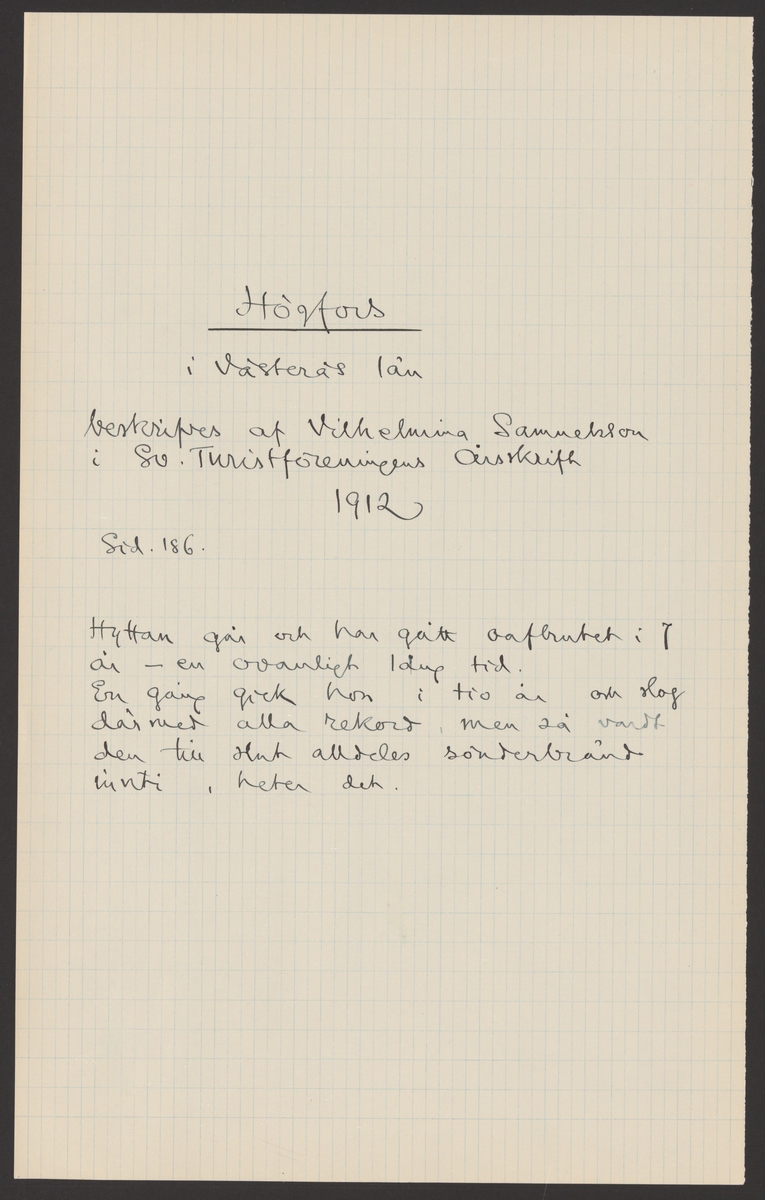 Högfors
i Västerås län
beskrifves af Vilhelmina Samuelsson
i Sv. Turistföreningens Årsskrift
1912
Sid. 186.
Hyttan går och har gått oafbrutet i 7
år – en ovanligt lång tid.
En gång gick hon i tio år och slog
därmed alla rekord, men så vardt
den till slut alldeles sönderbränd
inuti, heter det.